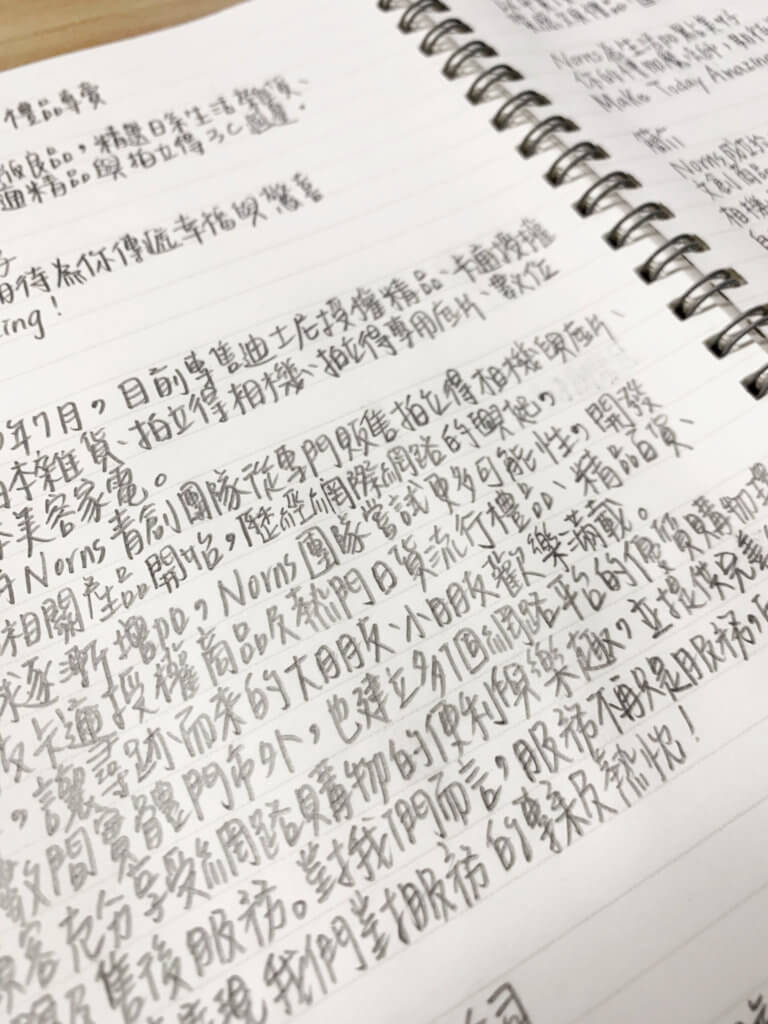 禮品專賣
良品，精選日系生活雜貨、
通精品與拍立得3C週邊.
待為你傳遞幸福與驚喜
ing!
年7月，目前專售迪士尼授權精品、卡通授權
本雜貨、拍立得相機、拍立得專用底片、數位
美容家電。
Norns青創團隊從專門販售拍立得相機與底片、
相關產品開始，歷經網際網路的興起，
求逐漸增加，Norns團隊嘗試更多可能性，開發
卡通授權商品及熱門日貨流行禮品、精品百貨、
，讓尋跡而來的大朋友、小朋友歡樂滿載。
數間實體門市外，也建立多個網路平台的優質購物環
顧客充分享受網路購物的便利與樂趣，並提供完善
售後服務。對我們而言，服務不再只是服務，
我們對服務的專業及熱忱！
Norns為生活加點美好
Make Today Amazing
Norns
相機